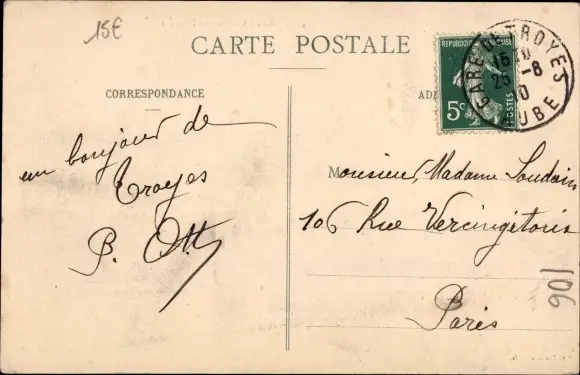 15€
CARTE POSTALE
CORRESPONDANCE
un bonjour de
Troyes
B. Ott
REPUBLIQUE FRANÇAISE
5c
POSTES
GARE DE TROYES
15
25 -8
10
AUBE
Monsieur, Madame Soudain
106 Rue Vercingétorix
Paris
106